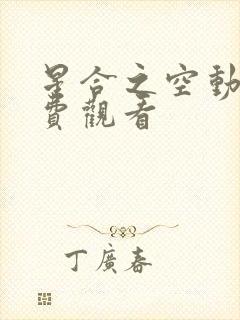 星合之空動
費觀看
丁廣春